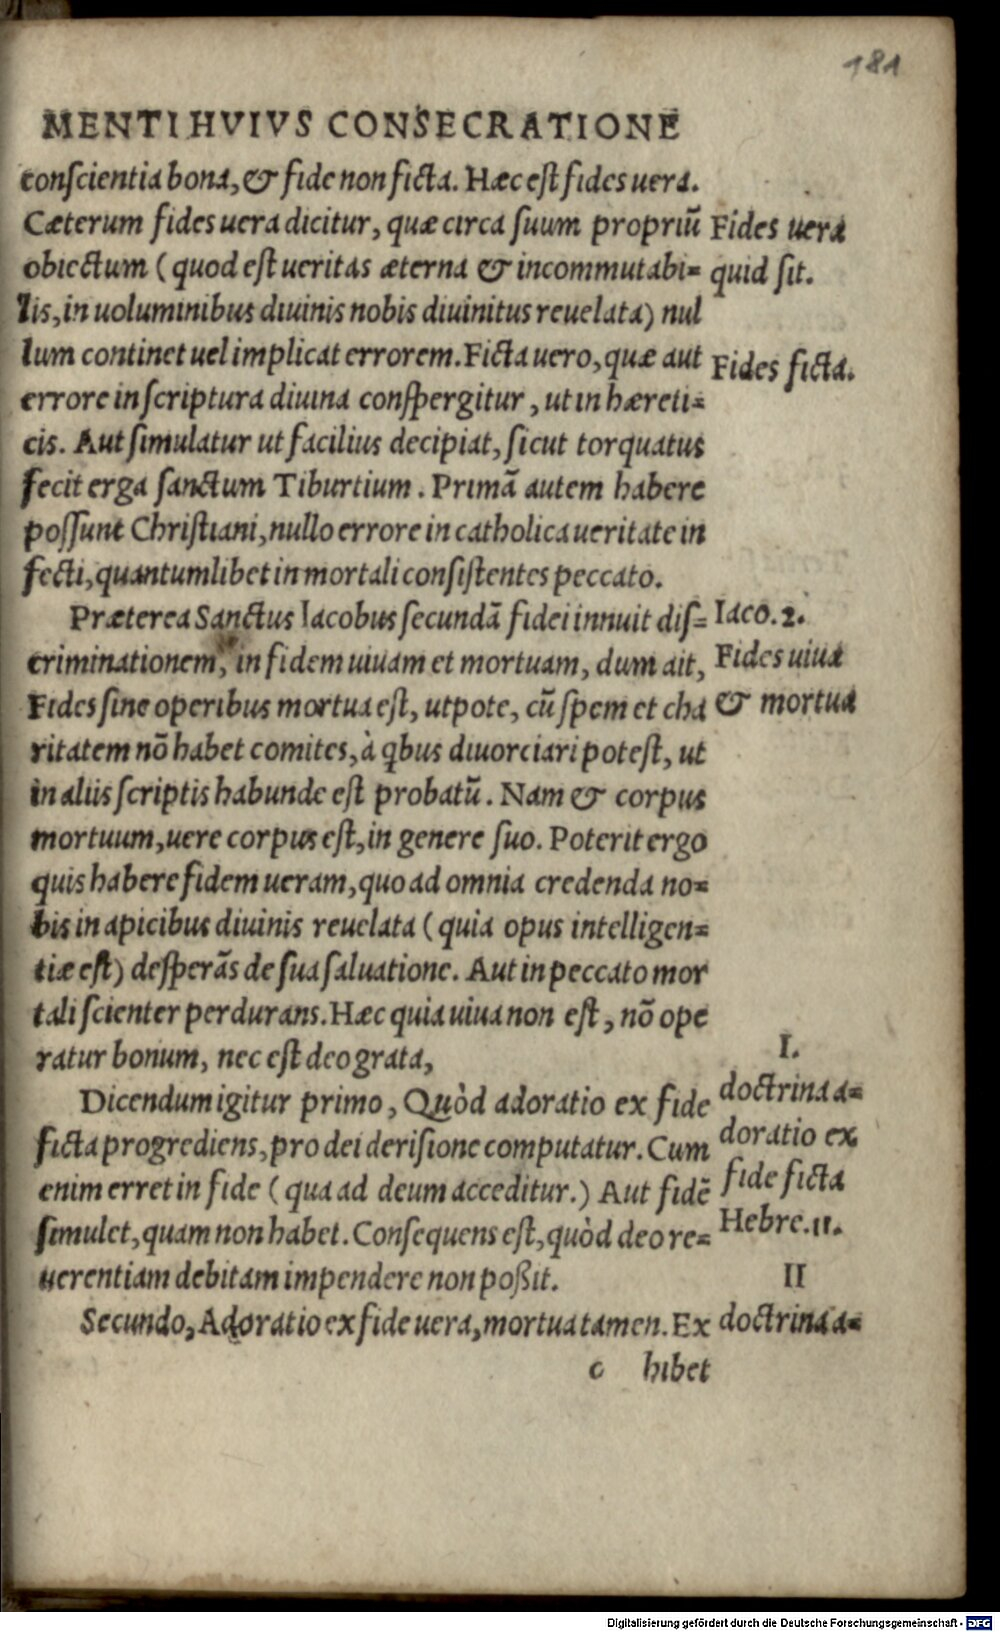 181
MENTI HVIVS CONSECRATIONE
conſcientia bona, & fide non ficta. Hæc eſt fides uera.
Cæterum fides uera dicitur, quæ circa ſuum propriũ
obiectum (quod eſt ueritas æterna & incommutabi=
lis, in uoluminibus diuinis nobis diuinitus reuelata) nul
lum continet uel implicat errorem. Ficta uero, quæ aut
errore in ſcriptura diuina conſpergitur, ut in hæreti=
cis. Aut ſimulatur ut facilius decipiat, ſicut torquatus
fecit erga ſanctum Tiburtium. Primã autem habere
poſſunt Chriſtiani, nullo errore in catholica ueritate in
fecti, quantumlibet in mortali conſiſtentes peccato.
Præterea Sanctus Iacobus ſecundã fidei innuit diſ=
criminationem, in fidem uiuam et mortuam, dum ait,
Fides ſine operibus mortua eſt, utpote, cũ ſpem et cha
ritatem nõ habet comites, à qbus diuorciari poteſt, ut
in aliis ſcriptis habunde eſt probatũ. Nam & corpus
mortuum, uere corpus eſt, in genere ſuo. Poterit ergo
quis habere fidem ueram, quo ad omnia credenda no=
bis in apicibus diuinis reuelata (quia opus intelligen=
tiæ eſt) deſperãs de ſua ſaluatione. Aut in peccato mor
tali ſcienter perdurans. Hæc quia uiua non eſt, nõ ope
ratur bonum, nec eſt deo grata,
Dicendum igitur primo, Quòd adoratio ex fide
ficta progrediens, pro dei deriſione computatur. Cum
enim erret in fide (qua ad deum acceditur.) Aut fidẽ
ſimulet, quam non habet. Conſequens eſt, quòd deo re=
uerentiam debitam impendere non poßit.
Secundo, Adoratio ex fide uera, mortua tamen. Ex
c hibet
Fides uera
quid ſit.
Fides ficta.
Iaco. 2.
Fides uiua
& mortua
I.
doctrina a=
doratio ex
fide ficta
Hebre. 11.
II
doctrina a=
Digitalisierung gefördert durch die Deutsche Forschungsgemeinschaft - DFG